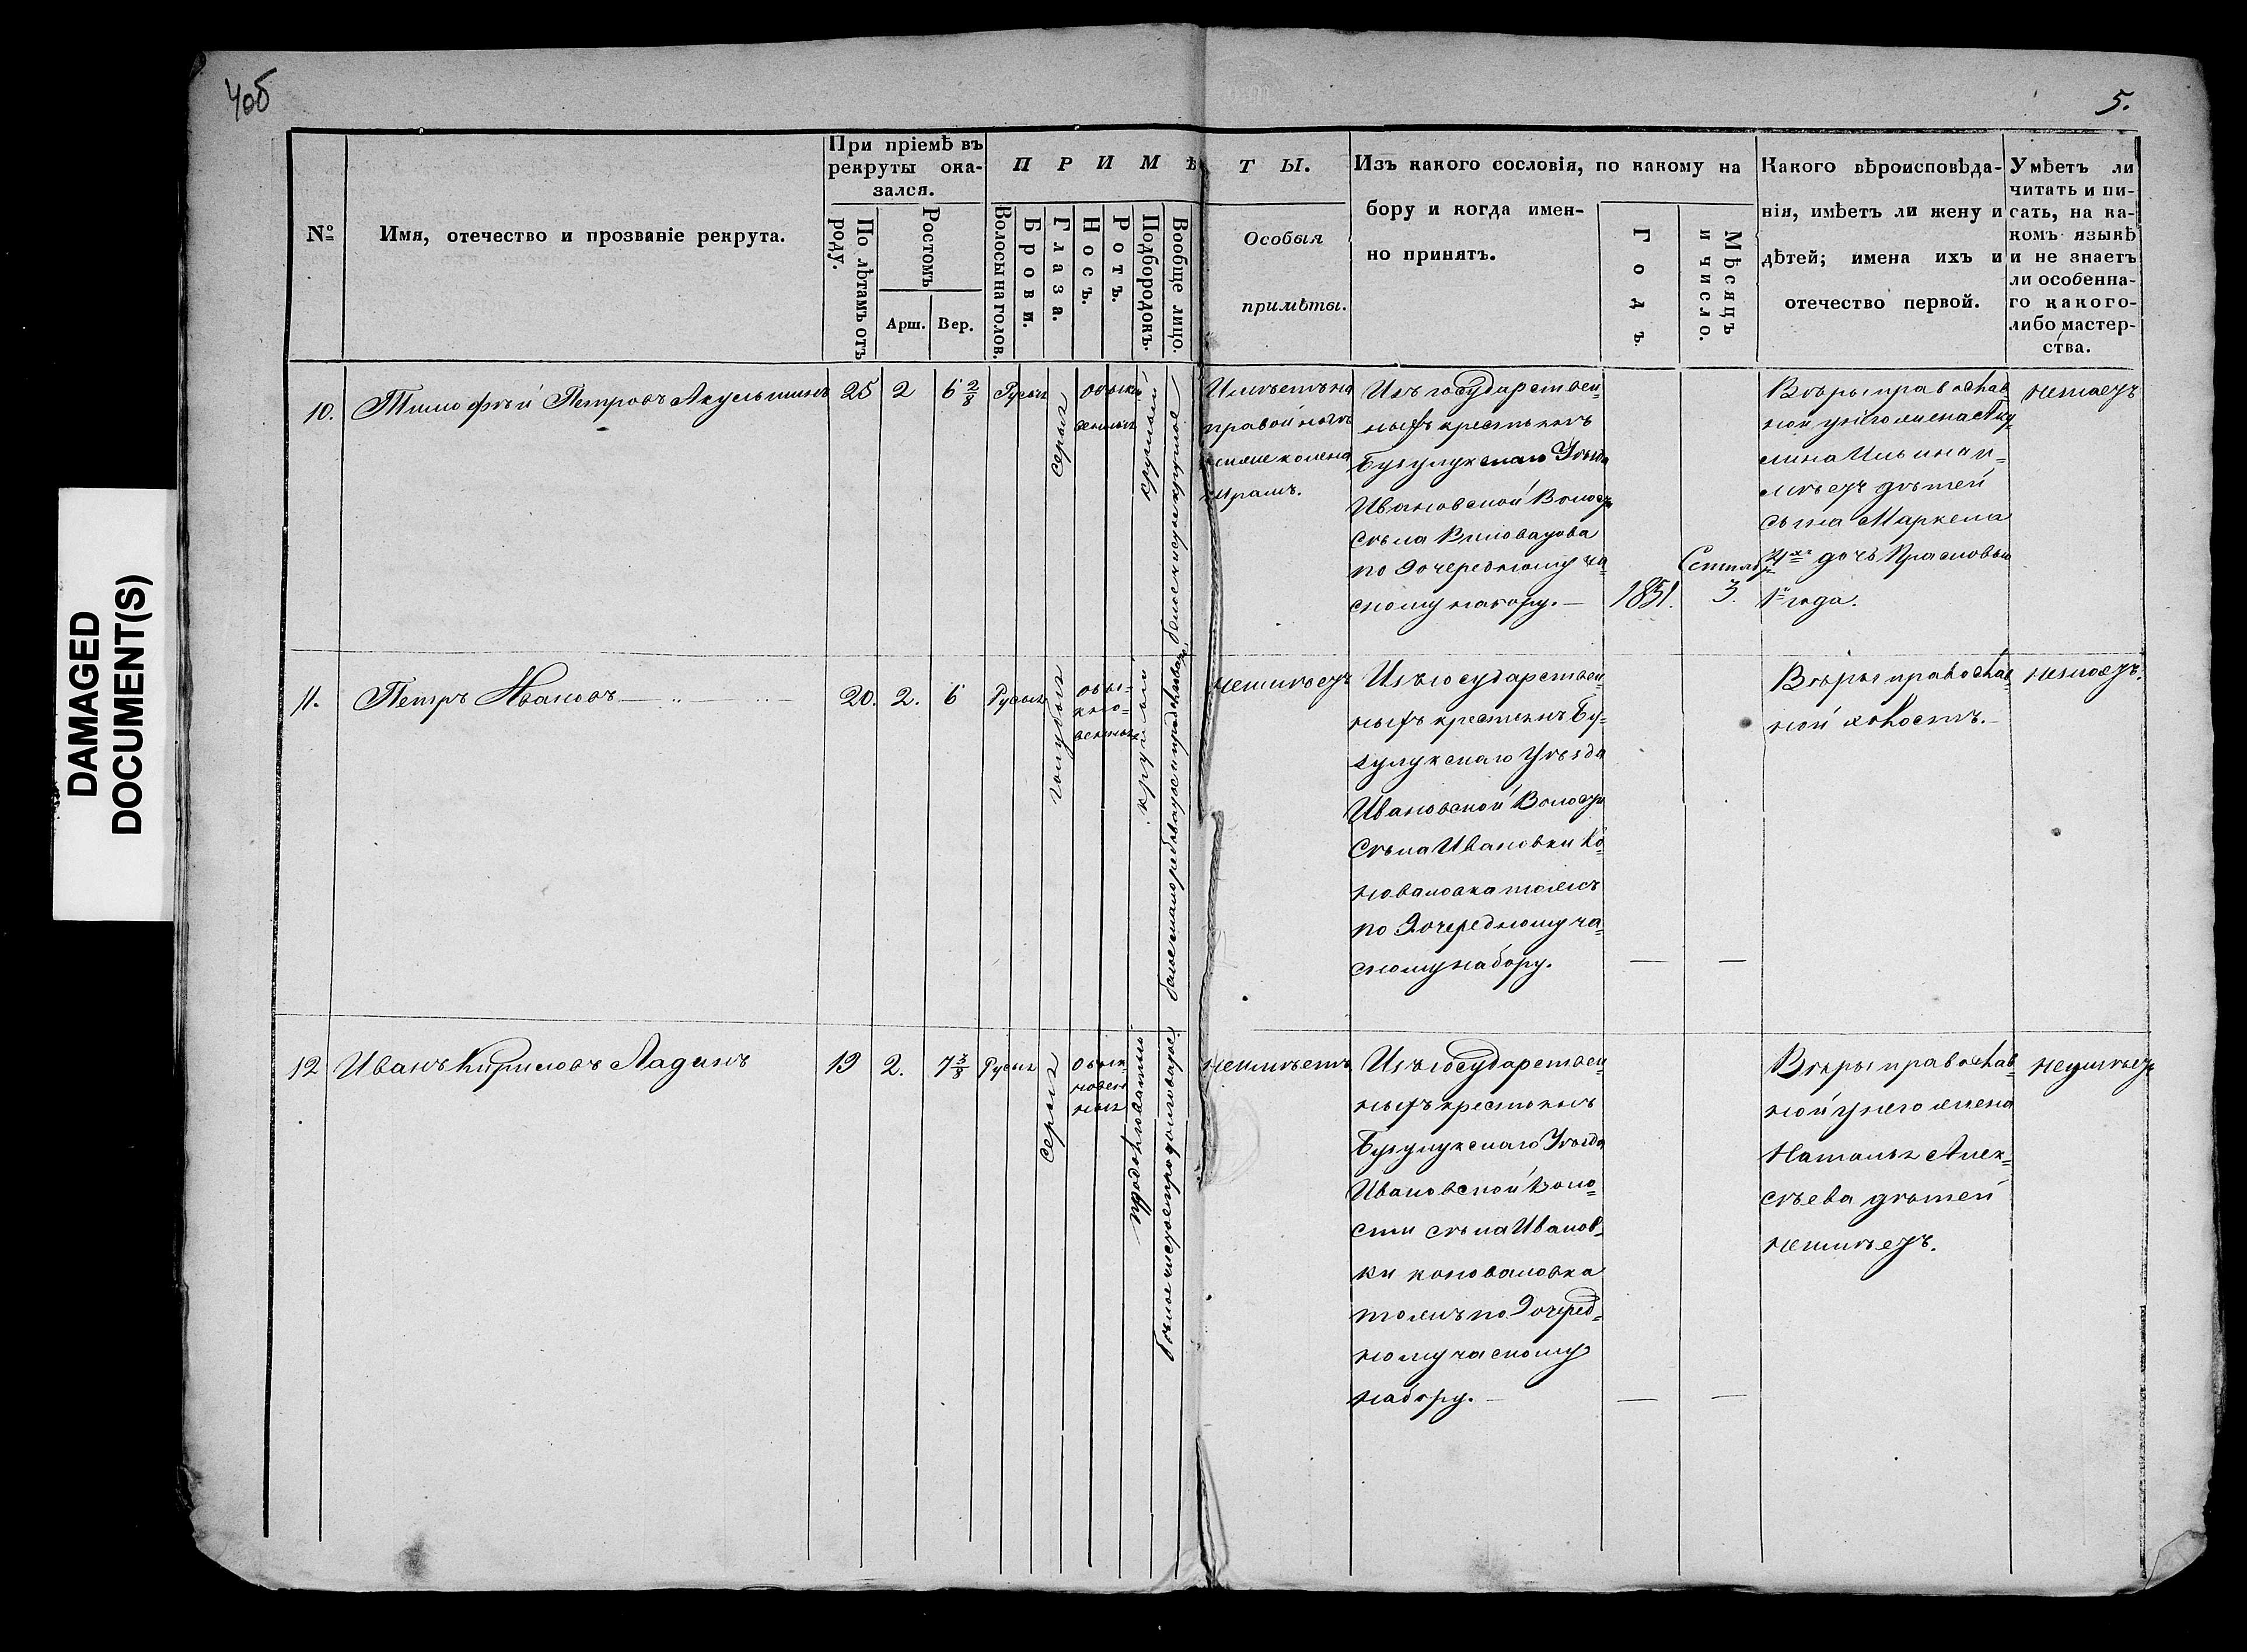 4об
5.
DAMAGED
DOCUMENT(S)
№
Имя, отечество и прозваніе рекрута.
При пріемѣ въ
рекруты ока-
зался.
По лѣтамъ отъ
роду.
Ростомъ
Арш.
Вер.
ПРИМѢТЫ.
Волосы на голов.
Брови.
Глаза.
Носъ.
Ротъ.
Подбородокъ.
Вообще лицо.
Особыя
примѣты.
Изъ какого сословія, по какому на
бору и когда имен-
но принятъ.
Годъ.
Мѣсяцъ
и число.
Какого вѣроисповѣда-
нія, имѣетъ ли жену и
дѣтей; имена ихъ и
отечество первой.
Умѣетъ ли
читать и пи-
сать, на ка-
комъ языкѣ
и не знаетъ
ли особенна-
го какого-
либо мастер-
ства.
10.
Тимофѣй Петровъ Акульшинъ
25
2
6 2/8
Русыя
серыя
обыкно
венныя
круглый
белое чистое круглое
Имѣетъ на
правой ногѣ
колена
шрамъ.
Изъ государствен=
ныхъ крестьянъ
Бузулукскаго Уѣзда
Ивановской Волости
Сѣла Виловатова
по 9 очередному ча=
сному набору.—
1851.
Сентяб
3.
Вѣры православ=
ной у него жена Аку
лина Ильина и=
мѣетъ дѣтей
сына Маркела
4хъ дочь Прасковью
1 года.
незнаетъ
11.
Петръ Ивановъ
20.
2.
6
Русыя
голубыя
обы=
кно=
венныя
круглый
Неимѣетъ
Изъ государствен=
ныхъ крестьянъ Бу=
зулукскаго Уѣзда
Ивановской Волости
Сѣла Ивановки Ко=
новаловка тожъ
по 9 очередному ча=
сному набору.
—
—
Вѣры православ=
ной холостъ.—
незнаетъ.
12
Иванъ Кириловъ Ладинъ
19
2.
7 3/8
Русыя
серыя
Обык
новен
ныя
продолговатый
белое чистое продолговатое
Неимѣетъ
Изъ государствен=
ныхъ крестьянъ
Бузулукскаго Уѣзда
Ивановской Воло=
сти сѣла Иванов=
ки коноваловка
тожъ по 9 очеред=
ному часному
набору.—
—
—
Вѣры православ=
ной у него жена
Наталья Алек=
сѣева дѣтей
неимѣетъ.
неумѣетъ